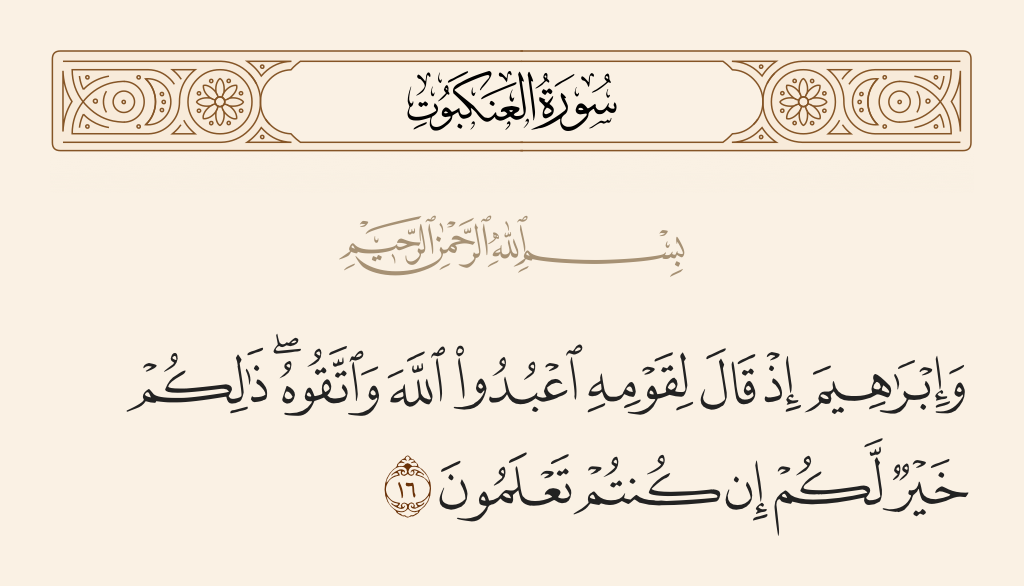 سُورَةُ العَنكَبُوتِ
بِسْمِ ٱللَّهِ ٱلرَّحْمَٰنِ ٱلرَّحِيمِ
وَإِبْرَٰهِيمَ إِذْ قَالَ لِقَوْمِهِ ٱعْبُدُوا۟ ٱللَّهَ وَٱتَّقُوهُ ۖ ذَٰلِكُمْ
خَيْرٌ لَّكُمْ إِن كُنتُمْ تَعْلَمُونَ ١٦